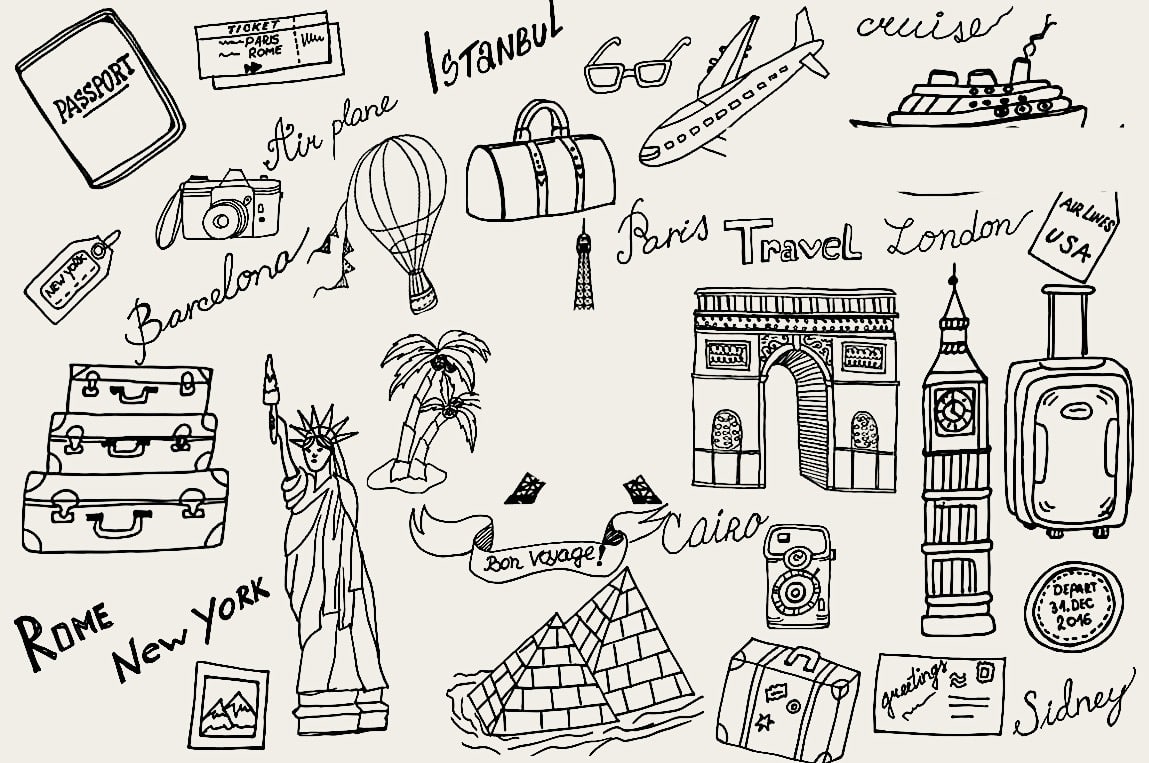 PASSPORT
TICKET
PARIS
ROME
ISTANBUL
cruise
Air plane
NEW YORK
Barcelona
Paris
Travel
London
AIR LINES
USA
Bon Voyage!
Cairo
ROME
New YORK
DEPART
31. DEC
2016
greetings
Sidney